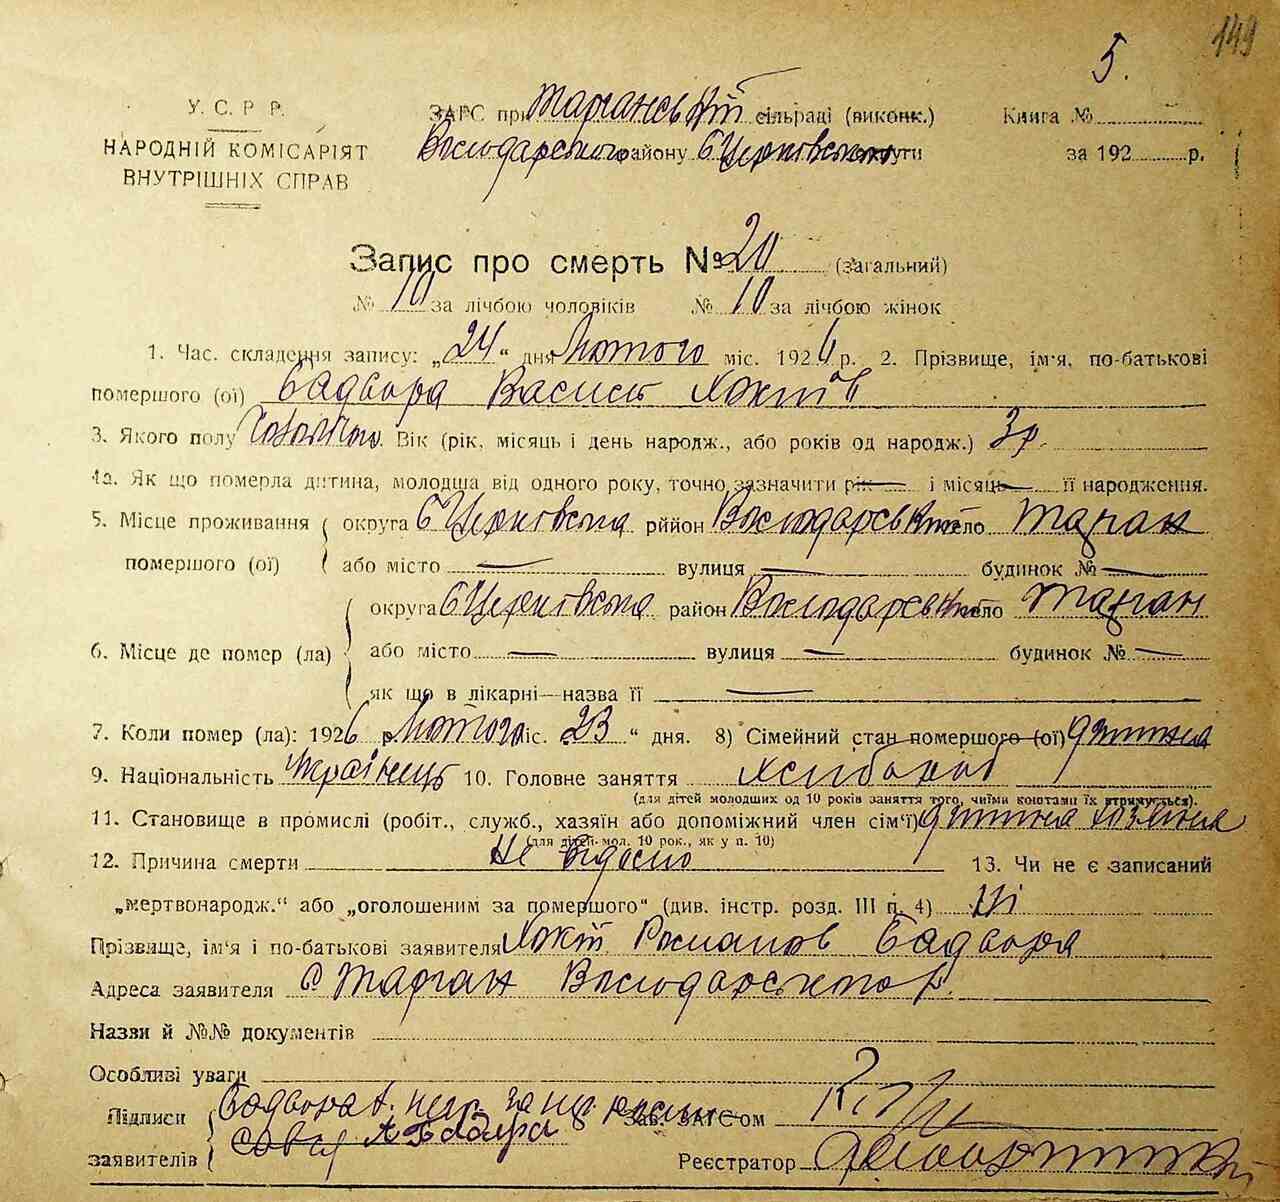 149
5.
У. С. Р. Р.
НАРОДНІЙ КОМІСАРІЯТ
ВНУТРІШНІХ СПРАВ
ЗАГС при Тарганській сільраді (виконк.)
Володарського району БЦерківської округи
Книга №
за 192 р.
Запис про смерть № 20 (загальний)
№ 10 за лічбою чоловіків № 10 за лічбою жінок
1. Час. складення запису: „24“ дня Лютого міс. 1926 р. 2. Прізвище, ім'я, по-батькові
помершого (ої) Бадвора Василь
3. Якого полу Вік (рік, місяць і день народж., або років од народж.) 3 р.
4а. Як що померла дитина, молодша від одного року, точно зазначити рік — і місяць — її народження.
5. Місце проживання округа БЦерківська рйион Володарський село Тарган
помершого (ої) або місто — вулиця — будинок № —
округа БЦерківська район Володарський село Тарган
6. Місце де помер (ла) або місто — вулиця — будинок № —
як що в лікарні—назва її —
7. Коли помер (ла): 1926 р. Лютого міс. 23 “ дня. 8) Сімейний стан помершого (ої) дитина
9. Національність Українець 10. Головне заняття Хлібороб
(для дітей молодших од 10 років заняття того, чиїми коштами їх втримується).
11. Становище в промислі (робіт., служб., хазяїн або допоміжний член сім'ї) дитина хазяїна
(для дітей мол. 10 рок., як у п. 10)
12. Причина смерти Не відомо 13. Чи не є записаний
„мертвонародж.“ або „оголошеним за помершого“ (див. інстр. розд. III п. 4) Ні
Прізвище, ім'я і по-батькові заявителя Романов Бадвора
Адреса заявителя с Тарган Володарського р.
Назви й №№ документів
Особливі уваги
Підписи
заявителів
Зав. ЗАГС'ом
Реєстратор